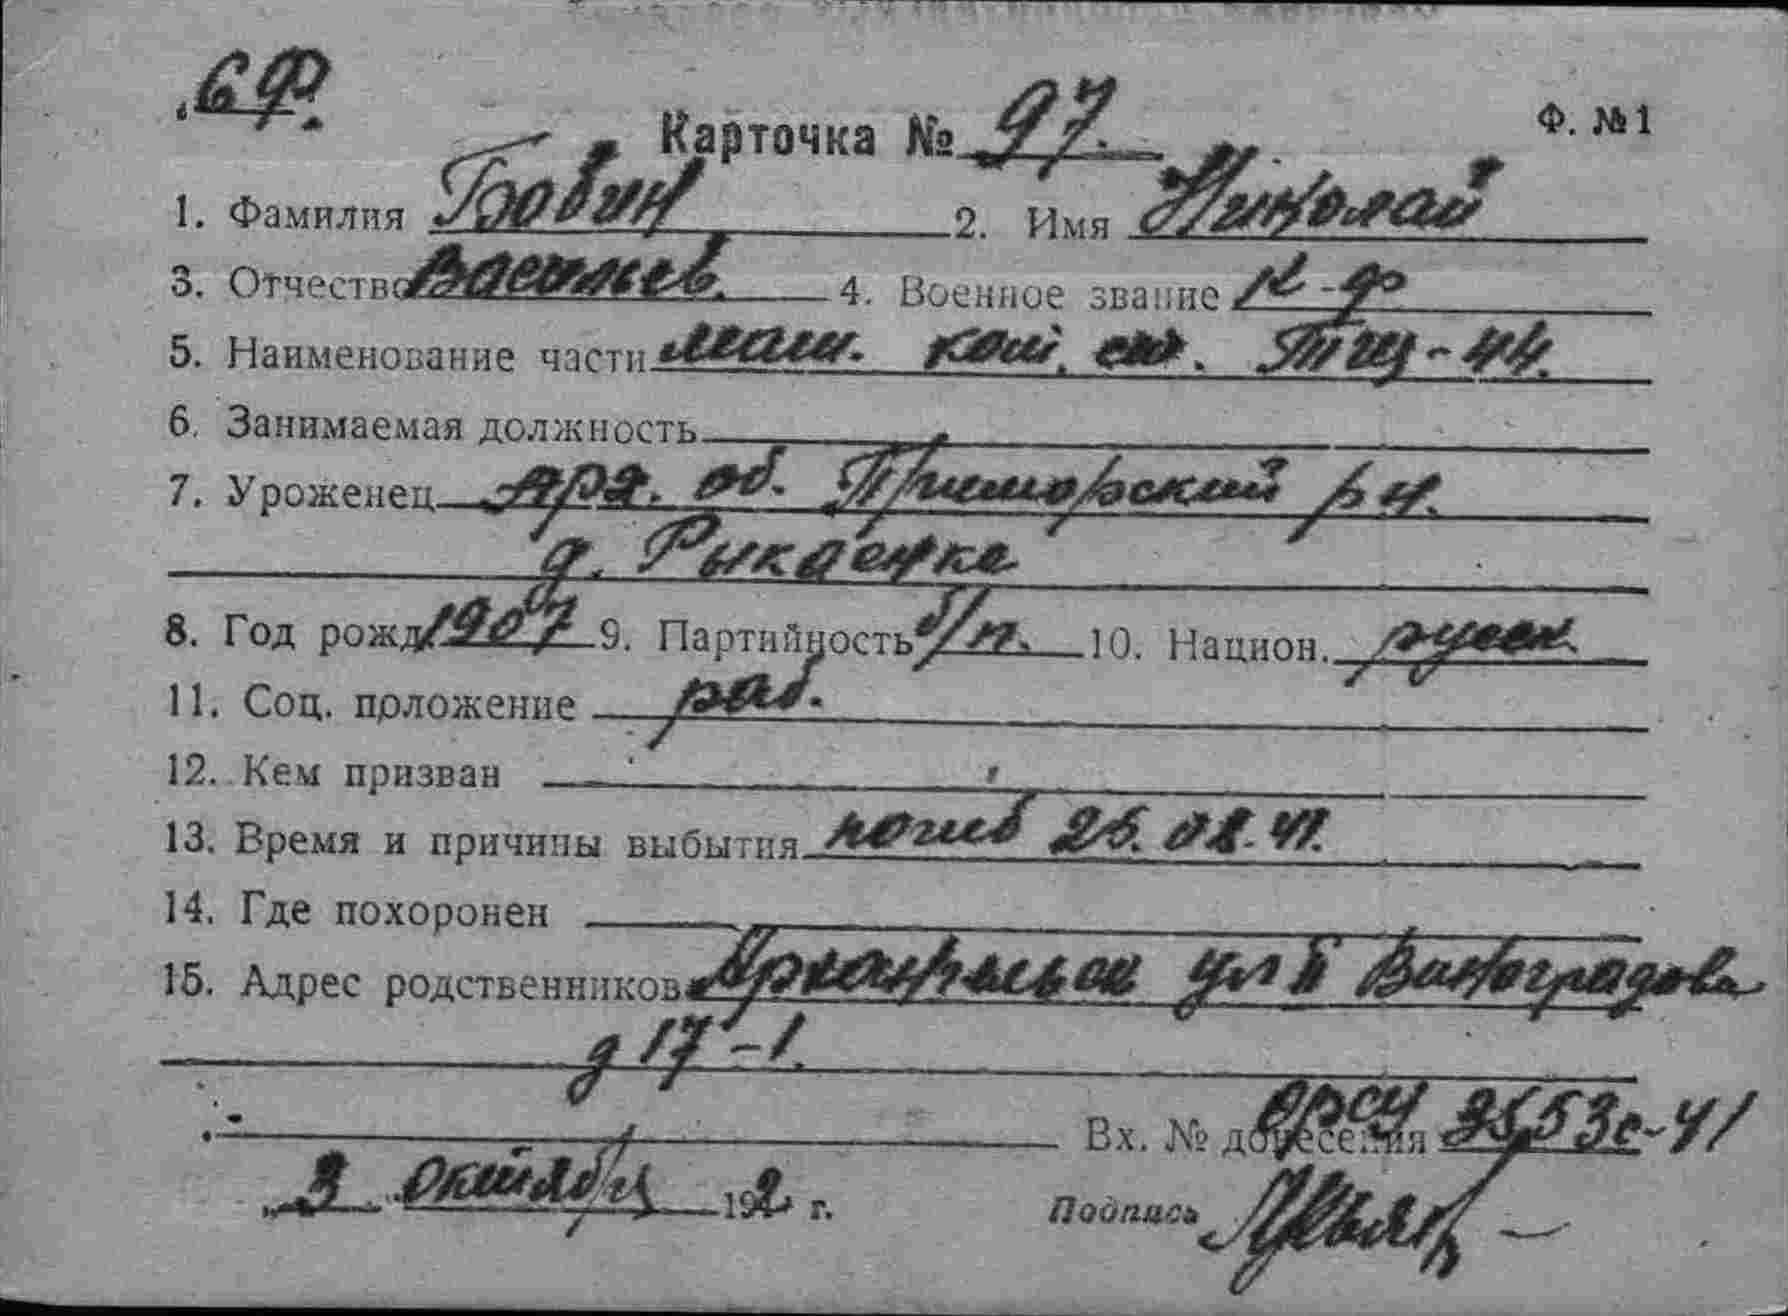 СФ.
Карточка № 97. Ф. №1
1. Фамилия Бовин 2. Имя Николай
3. Отчество Васильев. 4. Военное звание к-ф
5. Наименование части маш. кот. ТЩ-44.
6. Занимаемая должность
7. Уроженец Арх. об. Приморский р-н.
д.
8. Год рожд. 1907 9. Партийность б/п. 10. Национ. русск.
11. Соц. положение раб.
12. Кем призван
13. Время и причины выбытия погиб 25.08.41.
14. Где похоронен
15. Адрес родственников Архангельск ул П Виноградова
д 17-1.
Вх. № донесения 3553с-41
"3" октября 192 г. Подпись